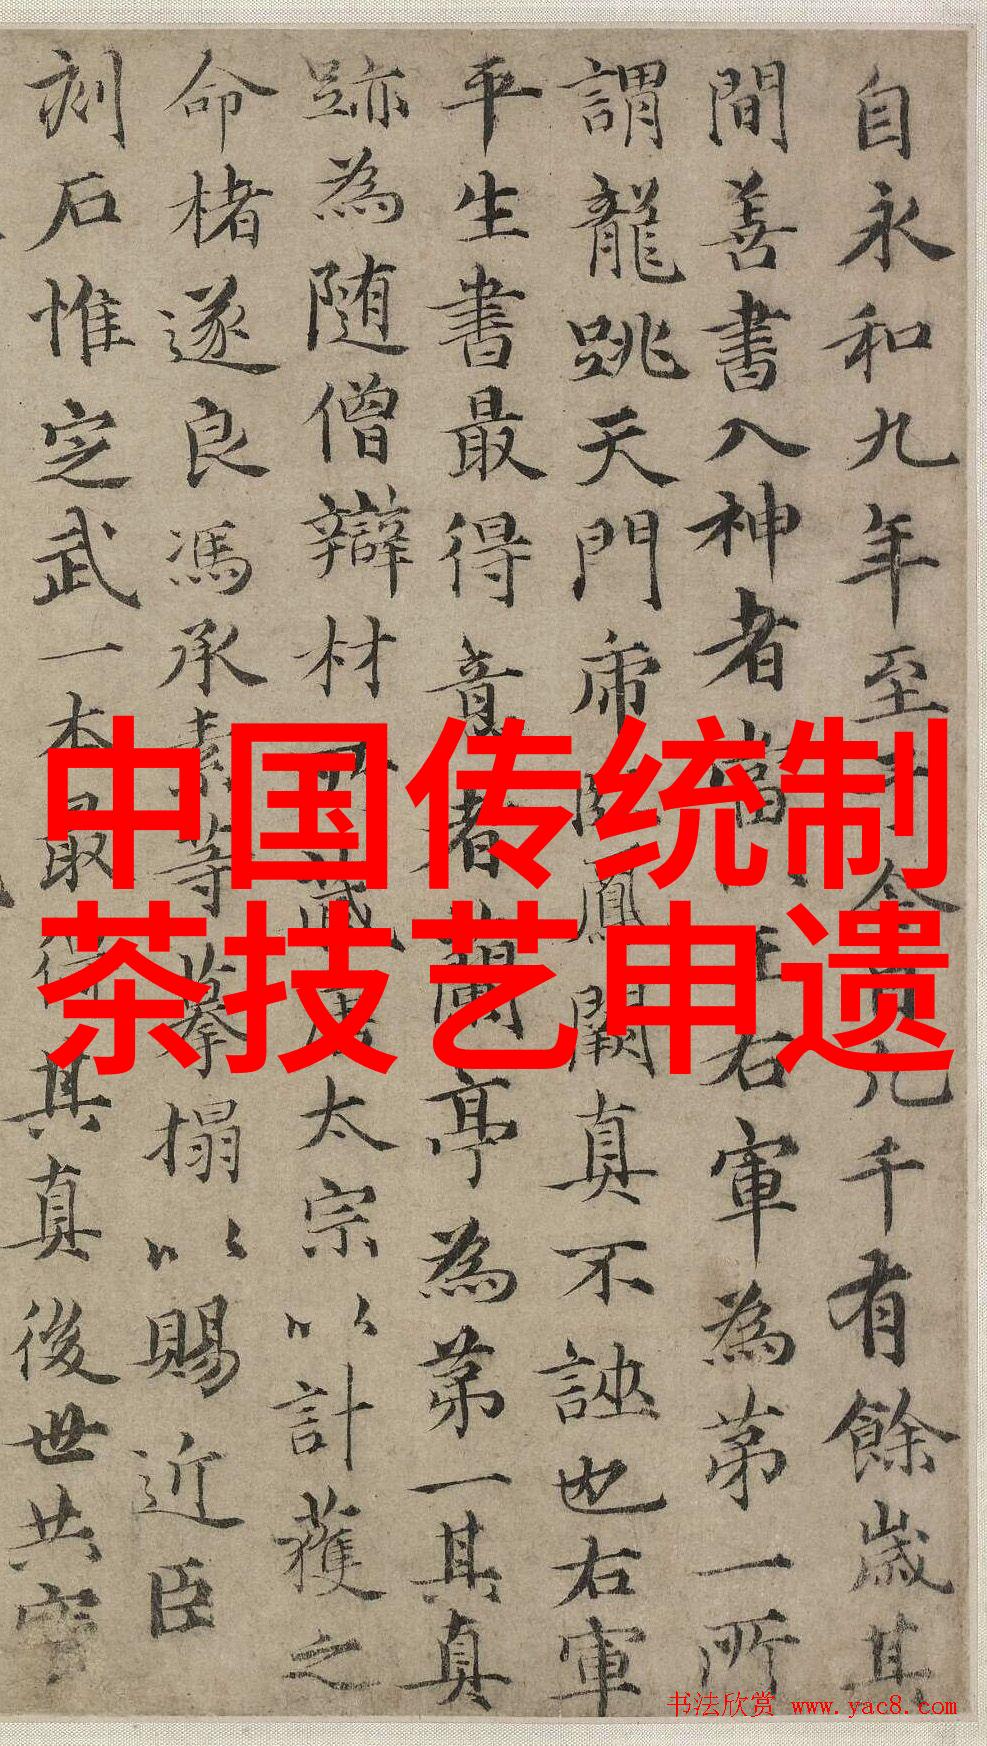 自永和九年至于今千有餘歲其
間善書入神者當以王右軍為苐一所
謂龍跳天門虎卧鳳闕真不誣也右軍
平生書最得意者蘭亭為苐一其真
跡為随僧辯材所藏唐太宗以計獲之
命楮遂良馮承素等摹搨以賜近臣
刻石惟定武一本最得其真後世共寳
中国传统制
茶技艺申遗
书法欣赏 www.yac8.com